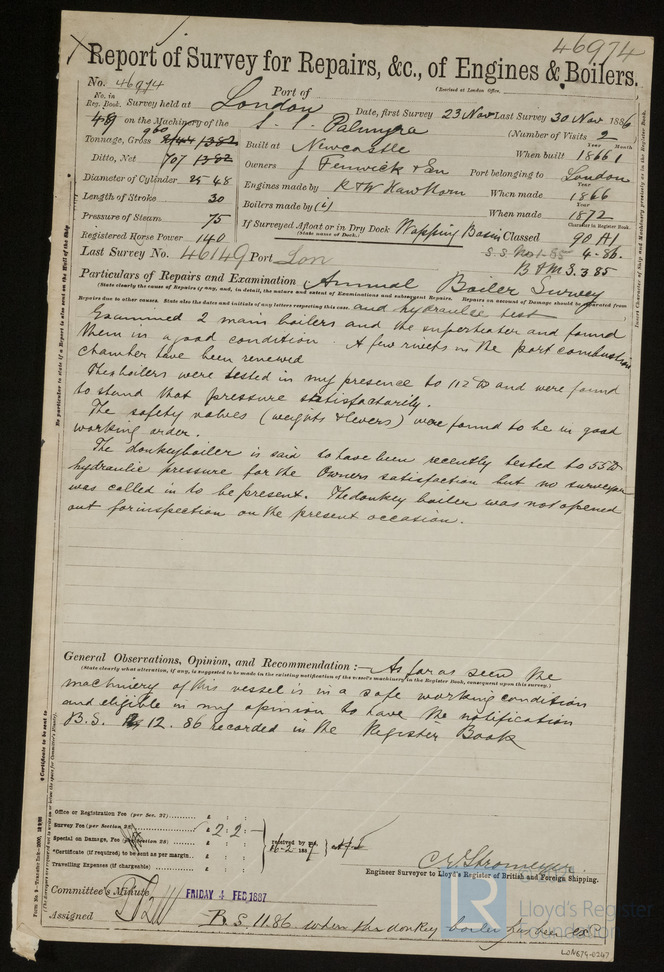 46974
Report of Survey for Repairs, &c., of Engines & Boilers.
(Received at London Office,
No. 46974
Port of London
No. in Reg. Book.
Survey held at
Date, first Survey 23 Nov Last Survey 30 Nov 1886
489 on the Machinery of the S.S. Palmyra
(Number of Visits 2
Tonnage, Gross
Built at Newcastle
When built 1866 1
Year Month
Ditto, Net 707 1382
Owners J Fenwick & Son
Port belonging to London
Diameter of Cylinder 25 48
Engines made by R & W Hawthorn
When made 1866
Year
Length of Stroke 30
Boilers made by (2)
When made 1872
Year
Pressure of Steam 75
If Surveyed Afloat or in Dry Dock Wapping Basin
(State name of Dock.)
Classed 90 A1
Character in Register Book.
Registered Horse Power 140
S.S. No 1-85 4-86.
Last Survey No. 46149 Port Lon
B & M.S. 3 85
Particulars of Repairs and Examination Annual Boiler Survey
(State clearly the cause of Repairs if any, and, in detail, the nature and extent of Examinations and subsequent Repairs. Repairs on account of Damage should be separated from
Repairs due to other causes. State also the dates and initials of any letters respecting this case.
and hydraulic test
Examined 2 main boilers and the superheater and found
them in a good condition. A few rivets in the port combustion
chamber have been renewed
The boilers were tested in my presence to 112 lbs and were found
to stand that pressure satisfactorily.
The safety valves (weights & levers) were found to be in good
working order.
The donkey boiler is said to have been recently tested to 55 lbs
hydraulic pressure for the Owners satisfaction but no surveyor
was called in to be present. The donkey boiler was not opened
out for inspection on the present occasion.
General Observations, Opinion, and Recommendation :— As far as seen the
(State clearly what alteration, if any, is suggested to be made in the existing notification of the vessel's machinery in the Register Book, consequent upon this survey.)
machinery of this vessel is in a safe working condition
and eligible in my opinion to have the notification
B.S. 12. 86 recorded in the Register Book
Office or Registration Fee (per Sec. 27)......... £ : :
Survey Fee (per Section 28)......... £ 2 : 2 :
Special on Damage, Fee (per Section 28) £ : :
*Certificate (if required) to be sent as per margin.. £ : :
Travelling Expenses (if chargeable) ......... £ : :
received by me,
16-2 1887
C E Stromeyer
Engineer Surveyor to Lloyd's Register of British and Foreign Shipping.
Committee's Minute
FRIDAY 4 FEB 1887
Assigned B.S. 11.86 when the donkey boiler has been exd
Lloyd's Register
Foundation
LON679-0267